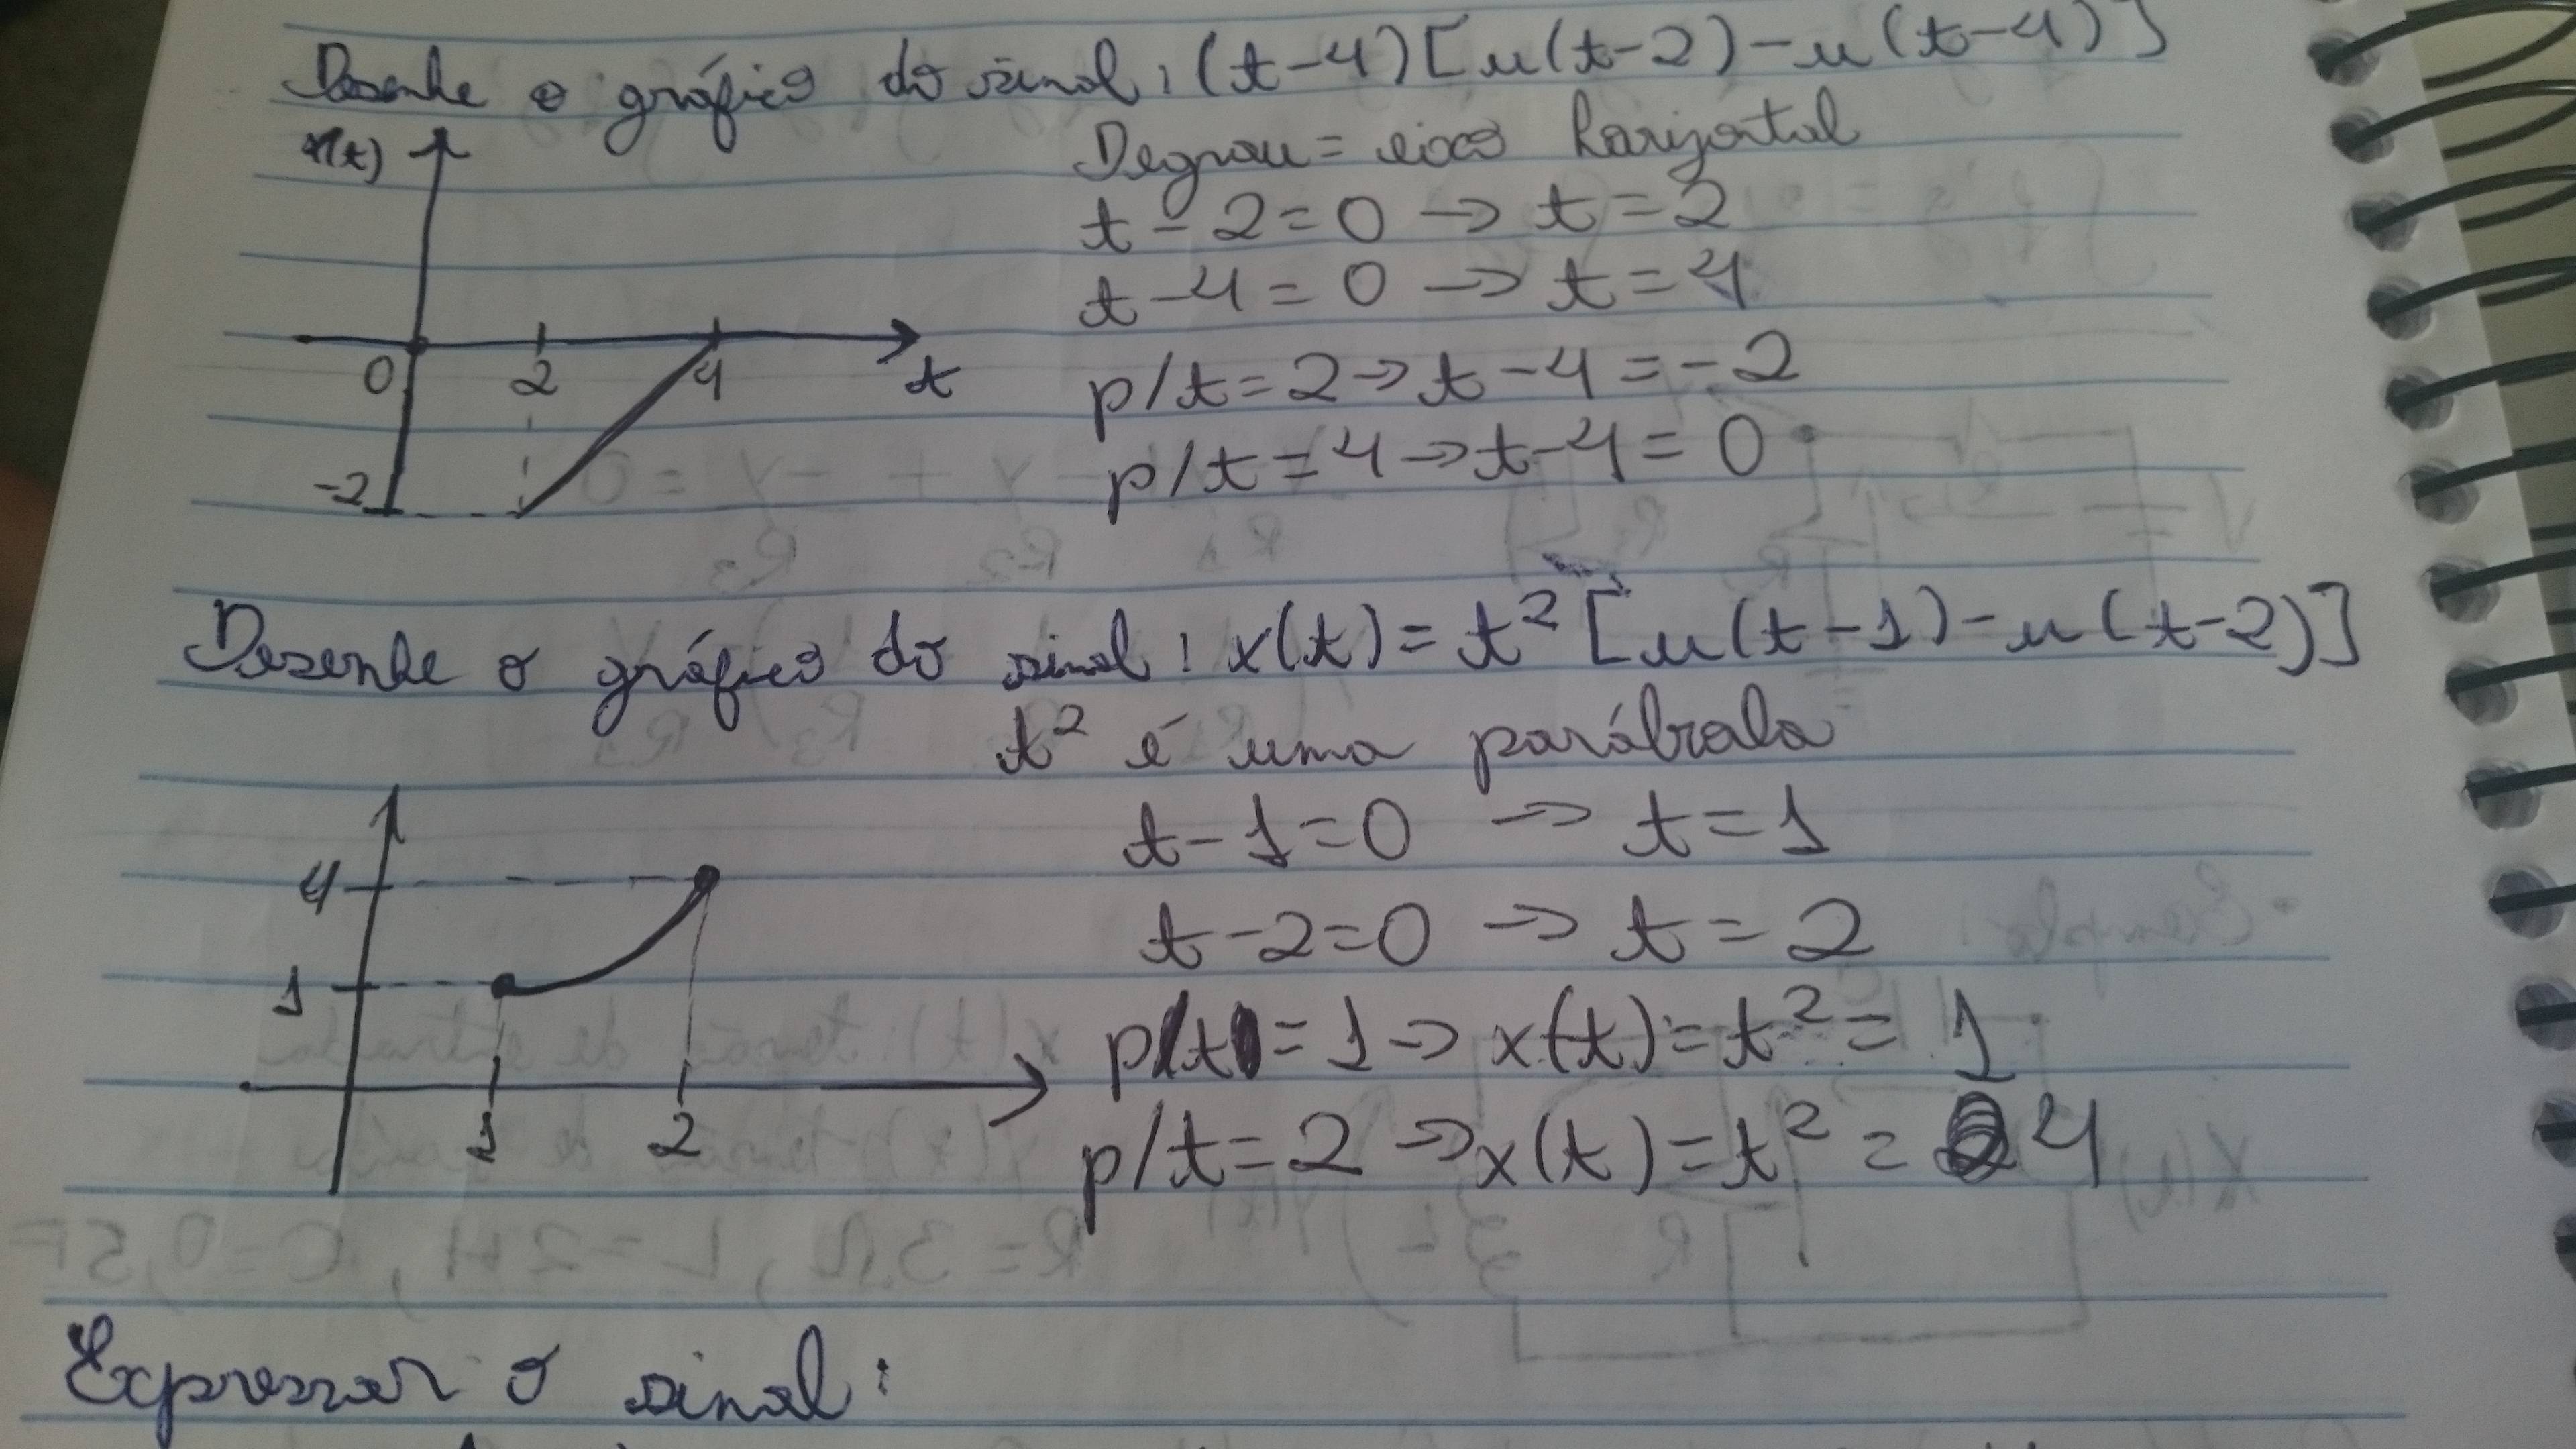 Desenhe o gráfico do sinal: (t-4)[u(t-2)-u(t-4)]
x(t)
Degrau = eixo horizontal
t-2=0 → t=2
t-4=0 → t=4
0 2 4 t
p/t=2→t-4=-2
p/t=4→t-4=0
-2
Desenhe o gráfico do sinal: x(t)=t² [u(t-1)-u(t-2)]
t² é uma parábola
t-1=0 → t=1
4
t-2=0 → t=2
1
p/t=1→ x(t)=t²=1
1 2
p/t=2→x(t)=t²=4
Expressar o sinal: